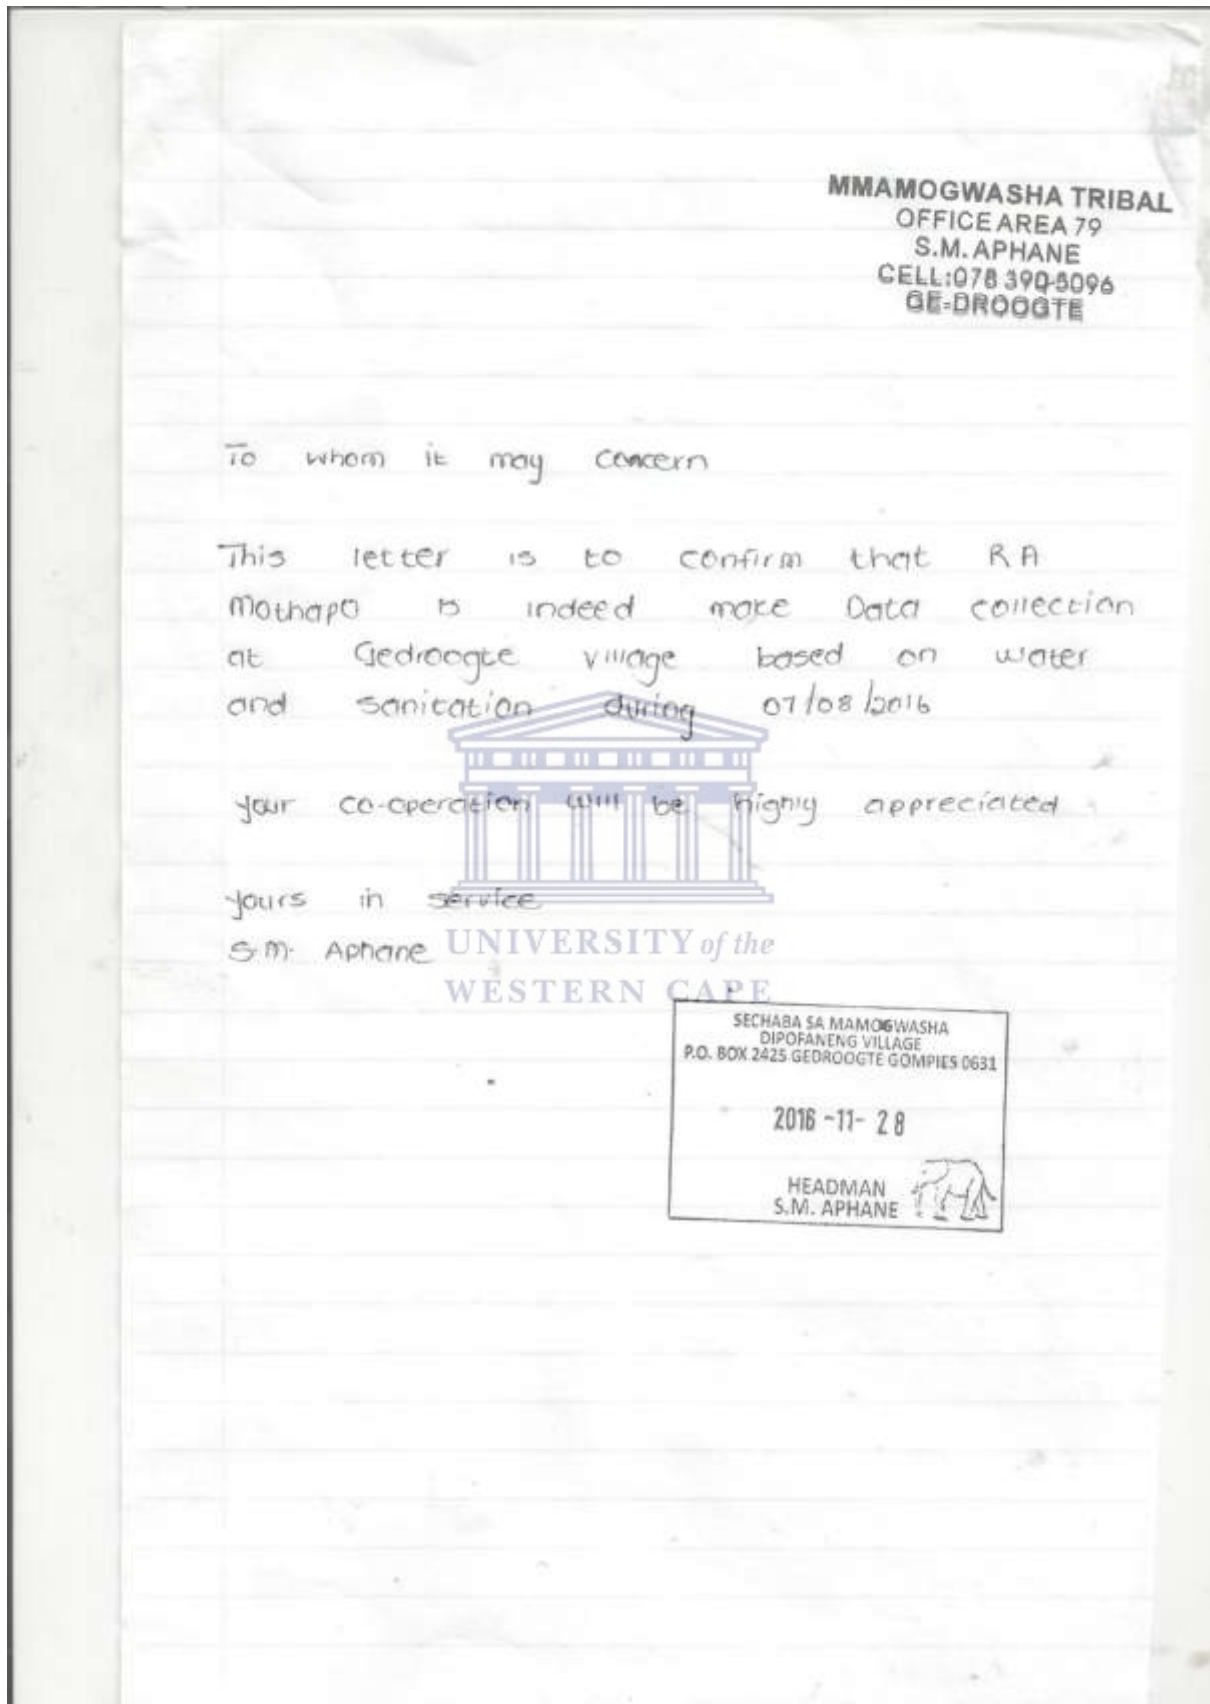 MMAMOGWASHA TRIBAL
OFFICE AREA 79
S.M. APHANE
CELL:078 390-5096
GE-DROOGTE
To whom it may concern
This letter is to confirm that RA
Mothapo is indeed make Data collection
at Gedroogte village based on water
and sanitation during 07/08/2016
your co-operation will be highly appreciated
yours in service
S.M. Aphane
UNIVERSITY of the
WESTERN CAPE
SECHABA SA MAMOGWASHA
DIPOFANENG VILLAGE
P.O. BOX 2425 GEDROOGTE GOMPIES 0631
2016-11-28
HEADMAN
S.M. APHANE